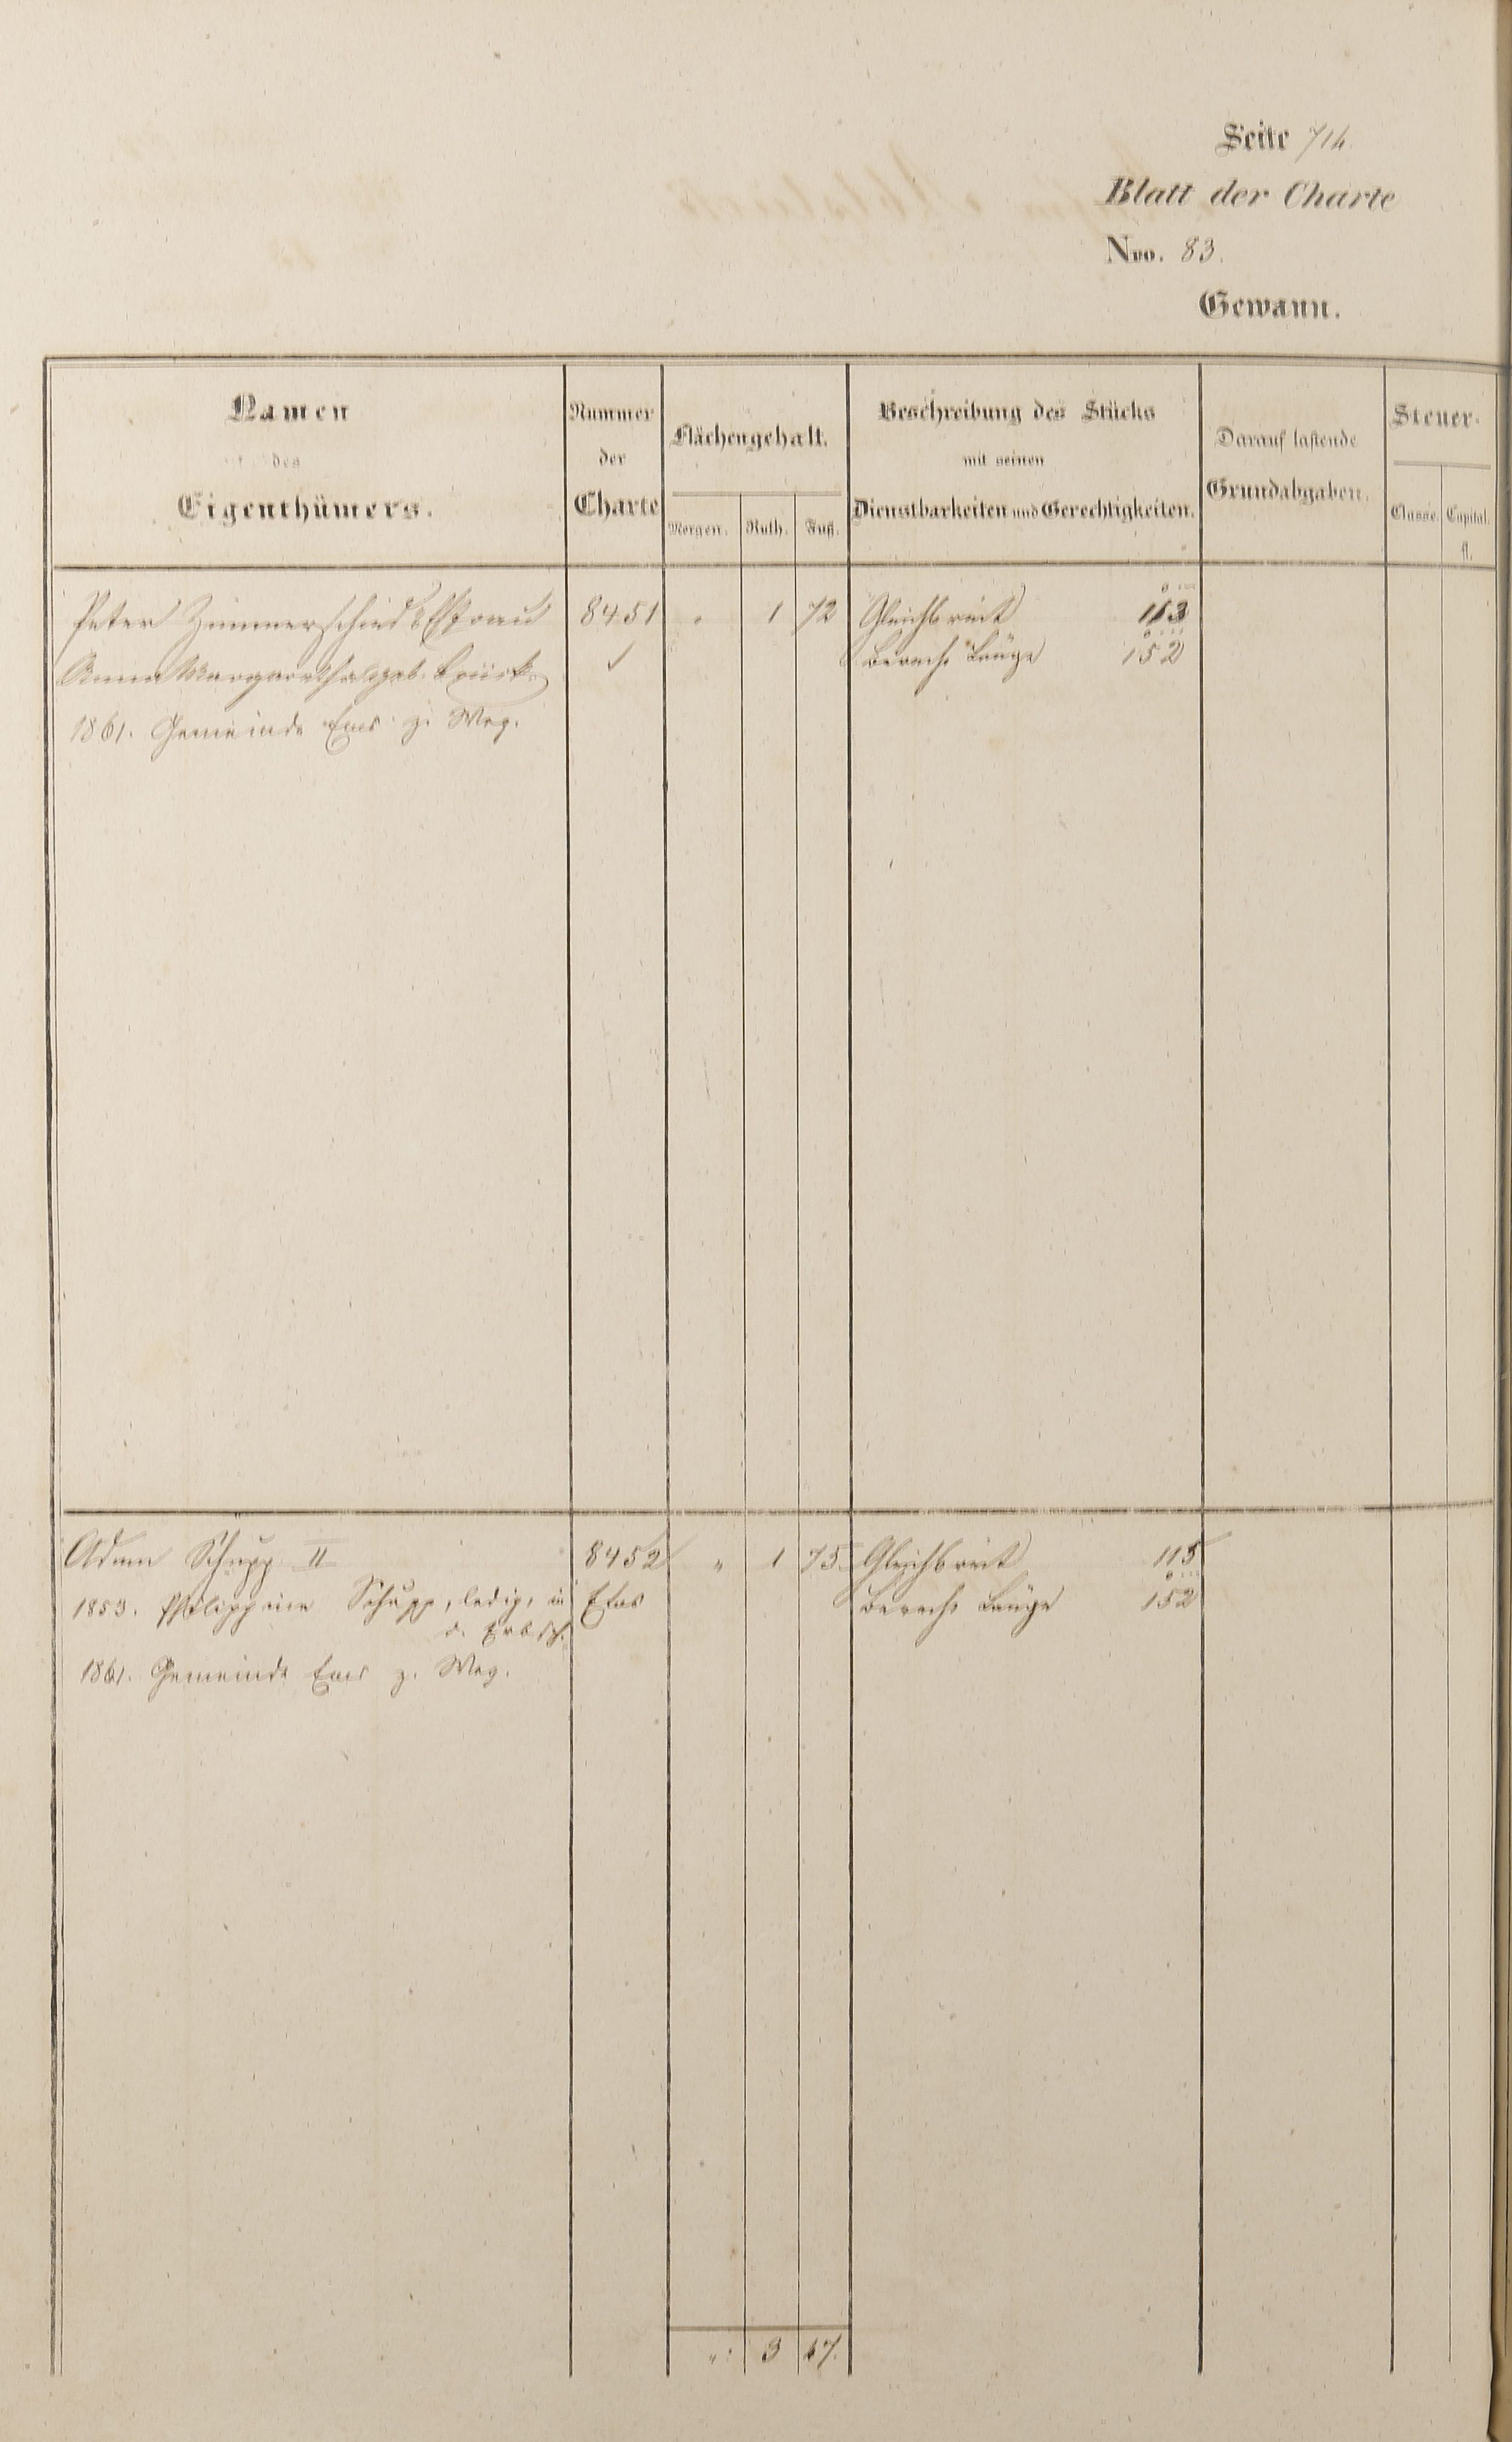 Seite 714
Blatt der Charte
Nro. 83.
Gewann.
Namen
des
Eigenthümers.
Nummer
der
Charte
Flächengehalt.
Morgen. Ruth. Fuß.
Beschreibung des Stücks
mit seinen
Dienstbarkeiten und Gerechtigkeiten.
Darauf lastende
Grundabgaben.
Steuer-
Classe. Capital.
fl.
Peter Zimmerschied & Ehfrau 8451 " 1 72 Gleichbreit 113
Anna Margaretha geb. Brück Berech. Länge 152
1861. Gemeinde Ems z. Weg.
Adam Schupp II 8452 " 1 75 Gleichbreit 115
1853. Philippine Schupp, ledig, in Ems Berech. Länge 152
d. Erbsch.
1861. Gemeinde Ems z. Weg.
" 3 47.